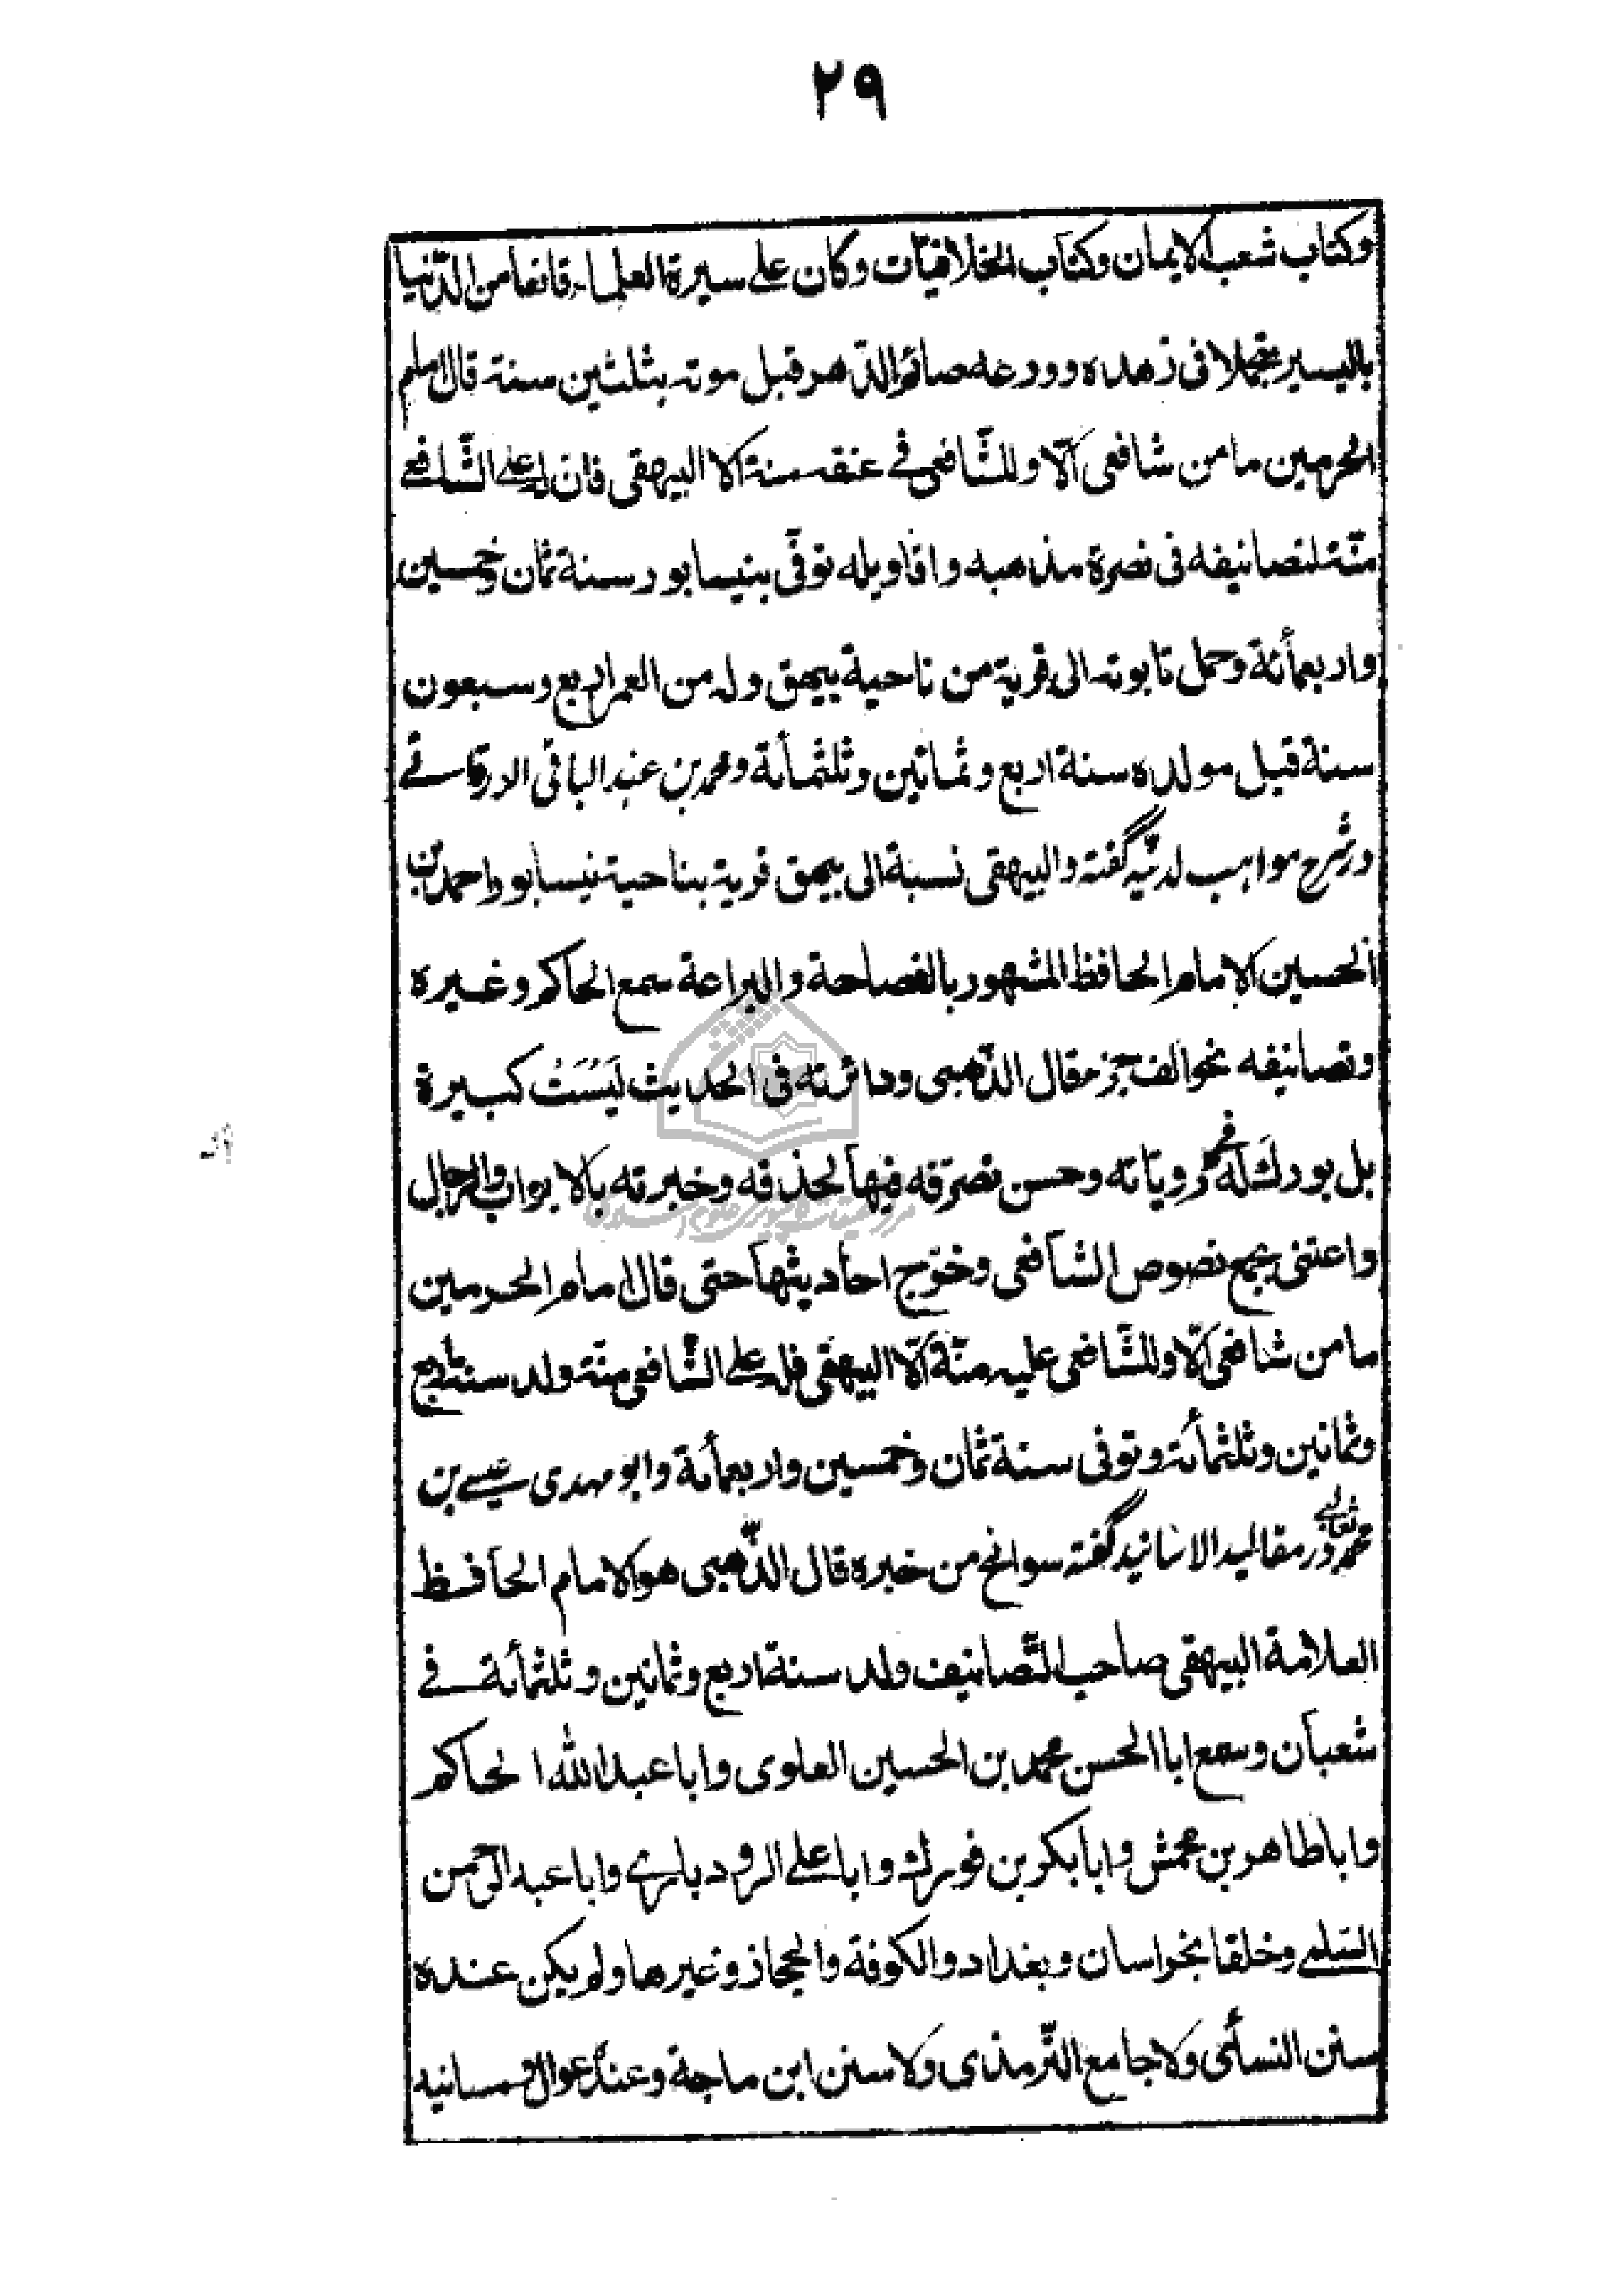 ٢٩
وكتاب شعب الايمان وكتاب الخلافيّات وكان على سيرة العلماء قانعا من الدّنيا
باليسير متجملا فى زهده وورعه صائم الدّهر قبل موته بثلثين سنة قال امام
الحرمين ما من شافعى الّا وللشّافعى فى عنقه منة الا البيهقى فان له على الشّافعى
منّة لتصانيفه فى نصرة مذهبه واقاويله توفّى بنيسابور سنة ثمان وخمسين
واربعمأئة وحمل تابوته الى قرية من ناحية بيهق وله من العمر اربع وسبعون
سنة قيل مولده سنة اربع وثمانين وثلثمأئة ومحمد بن عبد الباقى الزرقانى
در شرح مواهب لدنّيه گفته والبيهقى نسبة الى بيهق قرية بناحية نيسابور احمد بن
الحسين الامام الحافظ المشهور بالفصاحة والبراعة سمع الحاكم وغيره
وتصانيفه نحو الف جزء قال الذّهبى ودائرته فى الحديث ليست كبيرة
بل بورك له فى مروياته وحسن تصرّفه فيها لحذقه وخبرته بالابواب والرجال
واعتنى بجمع نصوص الشافعى وخرّج احاديثها حتى قال امام الحرمين
ما من شافعى الّا وللشّافعى عليه منّة الّا البيهقى فله على الشّافعى منّة ولد سنة اربع
وثمانين وثلثمأئة وتوفى سنة ثمان وخمسين واربعمأئة وابو مهدى عيسى بن
محمد ثعالبى در مقاليد الاسانيد گفته سوانح من خبره قال الذّهبى هو الامام الحافظ
العلامة البيهقى صاحب التّصانيف ولد سنة اربع وثمانين وثلثمأئة فى
شعبان وسمع ابا الحسن محمد بن الحسين العلوى وابا عبد الله الحاكم
وابا طاهر بن محمش وابا بكر بن فورك وابا على الرودبارى وابا عبد الرحمن
السّلمى وخلقا بخراسان وبغداد والكوفة والحجاز وغيرها ولم يكن عنده
سنن النسائى ولا جامع التّرمذى ولا سنن ابن ماجة وعنده عوال ومسانيد